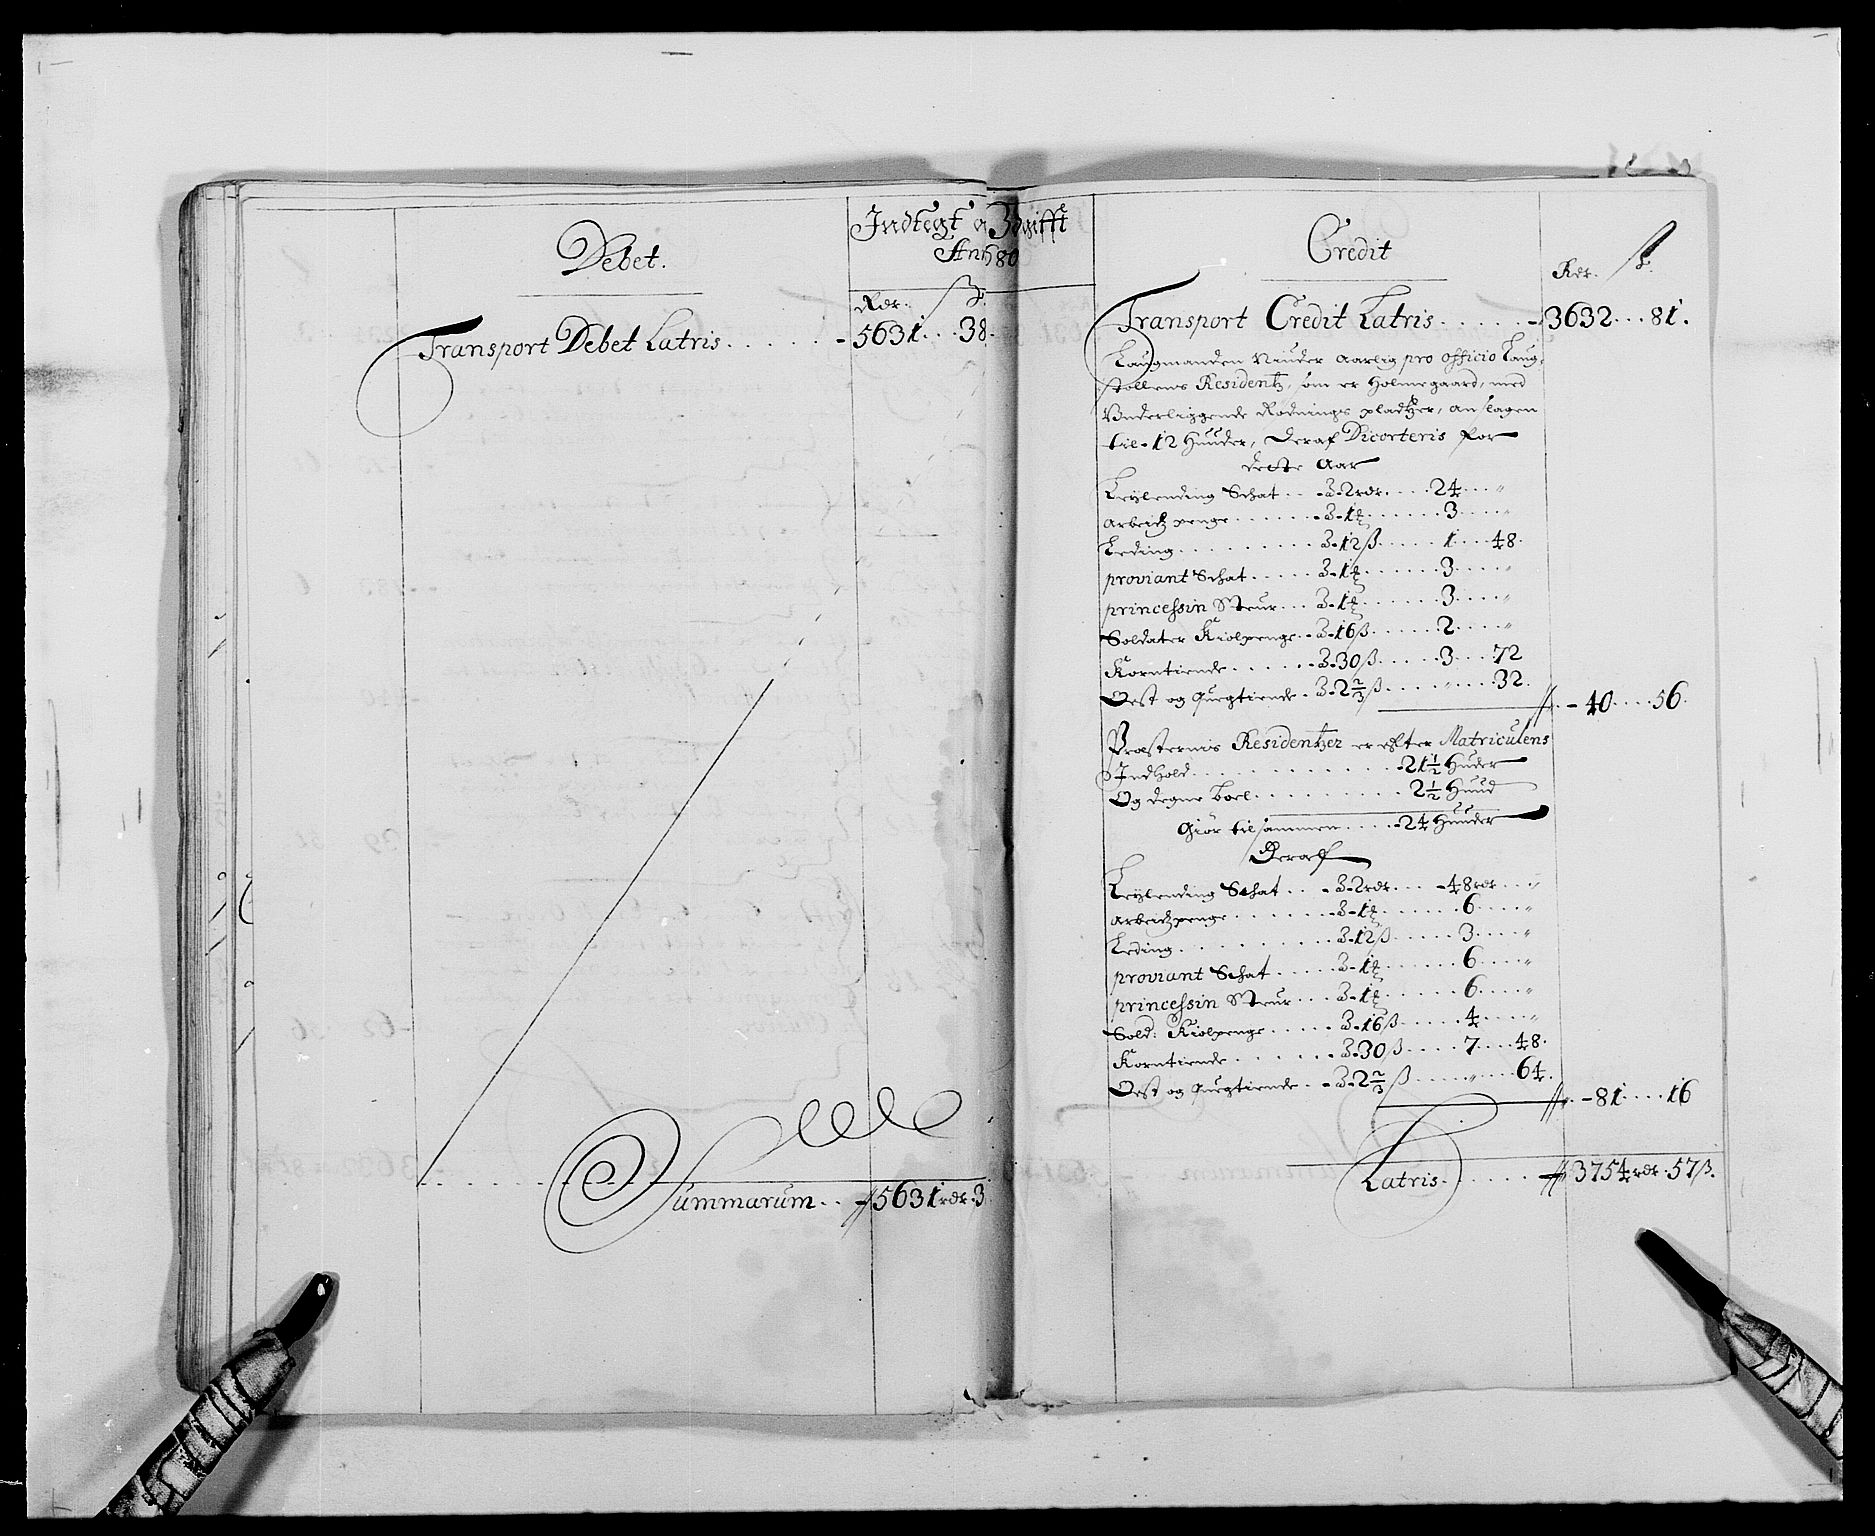 Debet.
Indtegt a Udgifft
An&#8203; 80
Rdr. ß.
Transport Debet Latris . . . . . - 5631 . . . 38
Summarum . . 5631 rdr. 3
Credit
Rdr. ß.
Transport Credit Latris . . . . . - 3632 . . . 81.
Laugmanden Niuder Aarlig pro officio Laug-
stollens Residentz, som er Holmegaard, med
Vnderliggende Rødnings pladtzer, anslagen
til - 12 Huuder, Deraf Dicorteris for
dette Aar
Leylending Schat . . - 3-2 rdr. . . . 24 . . . "
Arbeidtz penge . . . . . . - 3-1 ort . . . . . . 3 . . . "
Leding . . . . . . . . . 3-12 ß . . . . . 1 . . . 48.
proviant Schat . . . . . 3-1 ort . . . . . . 3 . . . "
princessin Steur . . . 3-1 ort . . . . . . 3 . . . "
Soldater Kiolpenge . . 3-16 ß . . . . . 2 . . . "
Korntiende . . . . . . - 3-30 ß . . . . . 3 . . . 72
Oest og Quegtiende . 3-2 2/3 ß . . . . " . . . 32.
- 40 . . . . 56.
Præsternis Residentzer er efter Matriculens
Indhold . . . . . . . . . . . . - 21 1/2 Huder
Og degne boel . . . . . . . . . 2 1/2 Huud
Giør tilsammen . . . . - 24 Huuder
Deraf
Leylending Schat . . - 3-2 rdr. . . . - 48 rdr . . . "
Arbeidtzpenge . . . . . . - 3-1 ort . . . . . . 6 . . . "
Leding . . . . . . . . . - 3-12 ß . . . . . 3 . . . "
proviant Schat . . . . . 3-1 ort . . . . . . 6 . . . "
princessin Steur . . . 3-1 ort . . . . . . 6 . . . "
Sold: Kiolpenge . . . . . 3-16 ß . . . . . 4 . . . "
Korntiende . . . . . . - 3-30 ß . . . . 7 . . . 48.
Oest og Quegtiende . . - 3-2 2/3 ß . . . . " . . . 64.
- 81 . . . . 16
Latris . . . . . . 3754 rdr. 57 ß.